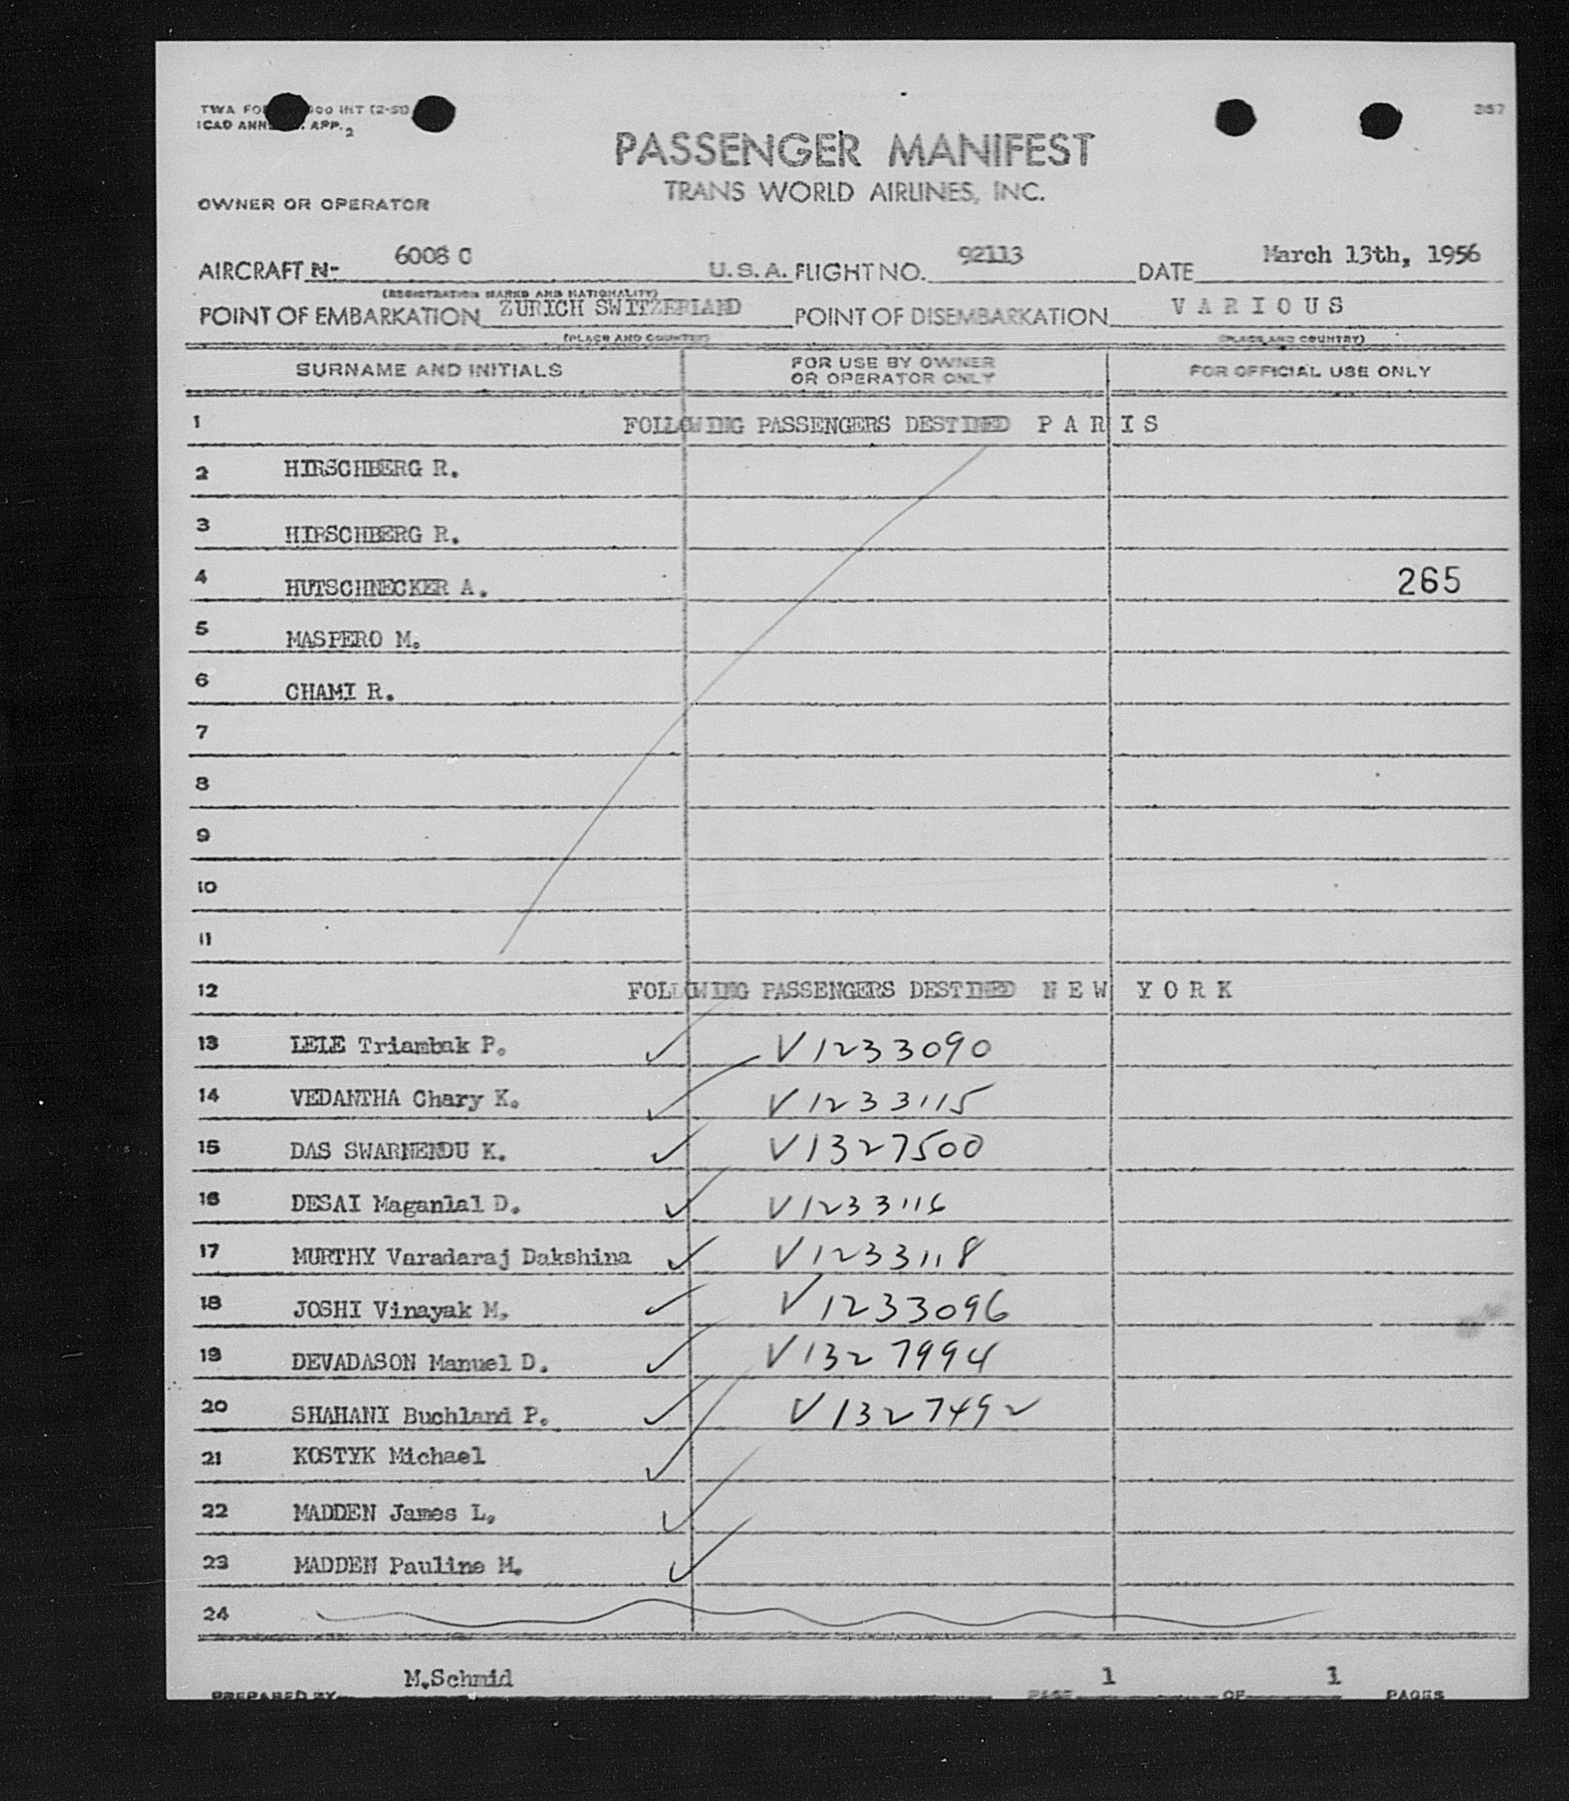 TWA FO 000 INT (2-51)
ICAO ANN . APP. 2
357
PASSENGER MANIFEST
TRANS WORLD AIRLINES, INC.
OWNER OR OPERATOR
AIRCRAFT N- 6008 C U.S.A. FLIGHT NO. 92113 DATE March 13th, 1956
(REGISTRATION MARKS AND NATIONALITY)
POINT OF EMBARKATION ZURICH SWITZERLAND POINT OF DISEMBARKATION V A R I O U S
(PLACE AND COUNTRY) (PLACE AND COUNTRY)
SURNAME AND INITIALS FOR USE BY OWNER OR OPERATOR ONLY FOR OFFICIAL USE ONLY
1 FOLLOWING PASSENGERS DESTINED P A R I S
2 HIRSCHBERG R.
3 HIRSCHBERG R.
4 HUTSCHNECKER A. 265
5 MASPERO M.
6 CHAMI R.
7
8
9
10
11
12 FOLLOWING PASSENGERS DESTINED N E W Y O R K
13 LELE Triambak P. ✓ V1233090
14 VEDANTHA Chary K. ✓ V1233115
15 DAS SWARNENDU K. ✓ V1327500
16 DESAI Maganlal D. ✓ V1233116
17 MURTHY Varadaraj Dakshina ✓ V1233118
18 JOSHI Vinayak M. ✓ V1233096
19 DEVADASON Manuel D. ✓ V1327994
20 SHAHANI Buchland P. ✓ V1327492
21 KOSTYK Michael ✓
22 MADDEN James L. ✓
23 MADDEN Pauline M. ✓
24
PREPARED BY M.Schmid PAGE 1 OF 1 PAGES